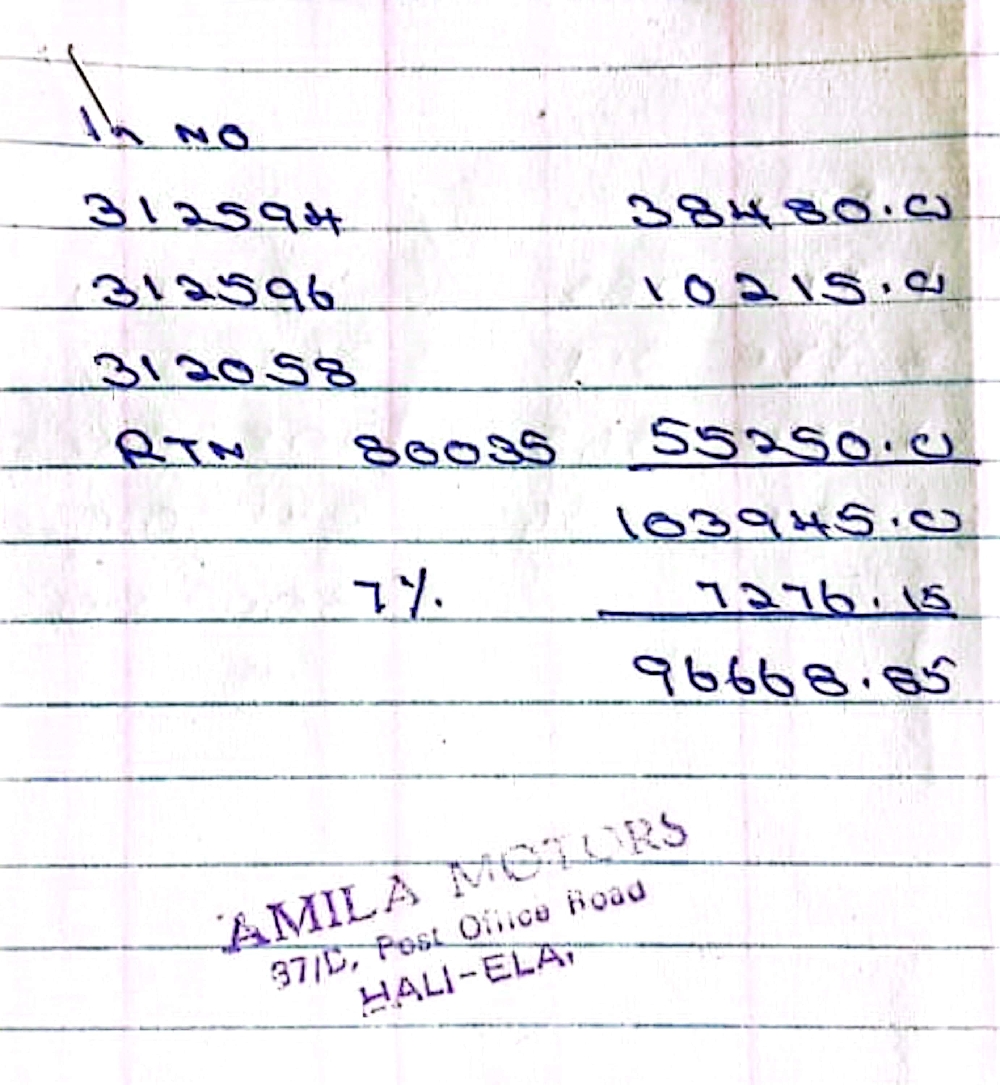 In NO
312594 38480.00
312596 10215.00
312058
RTN 80035 55250.00
103945.00
7% 7276.15
96668.85
AMILA MOTORS
37/C, Post Office Road
HALI-ELA.